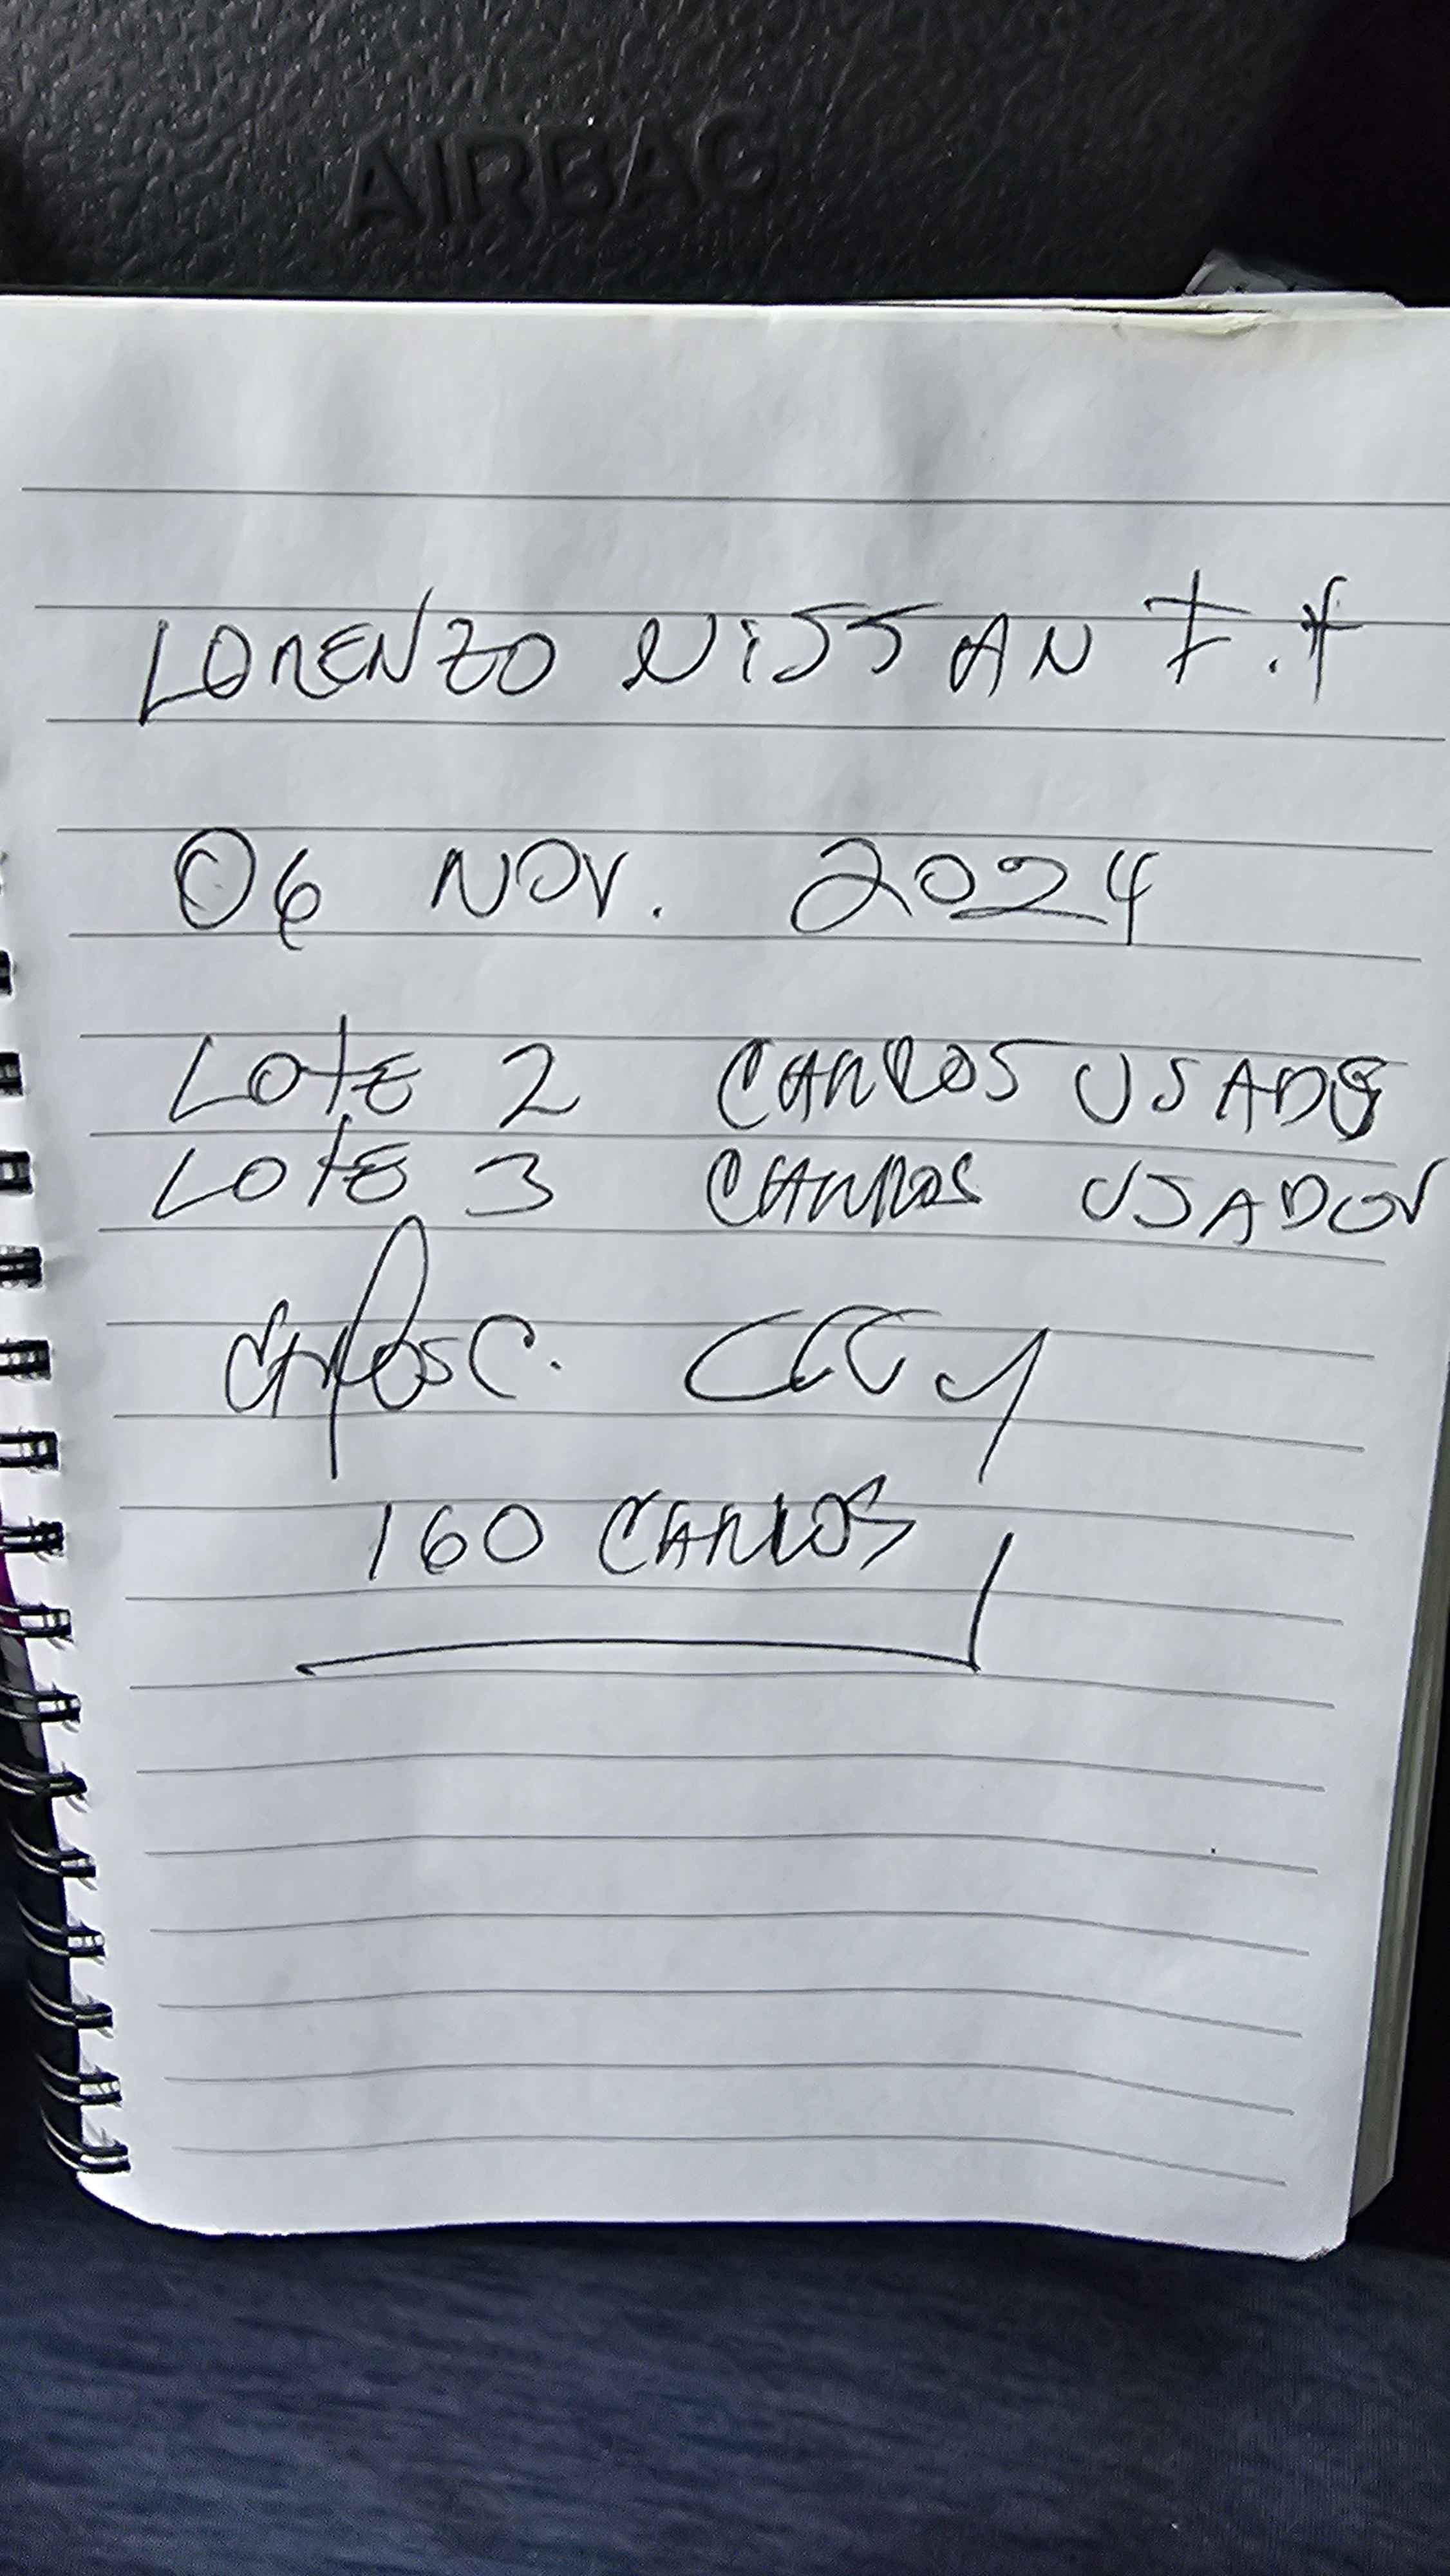 AIRBAG
LORENZO NISSAN F.T
06 NOV. 2024
LOTE 2 CARROS USADOS
LOTE 3 CARROS USADOS
Carlos C.
160 CARROS